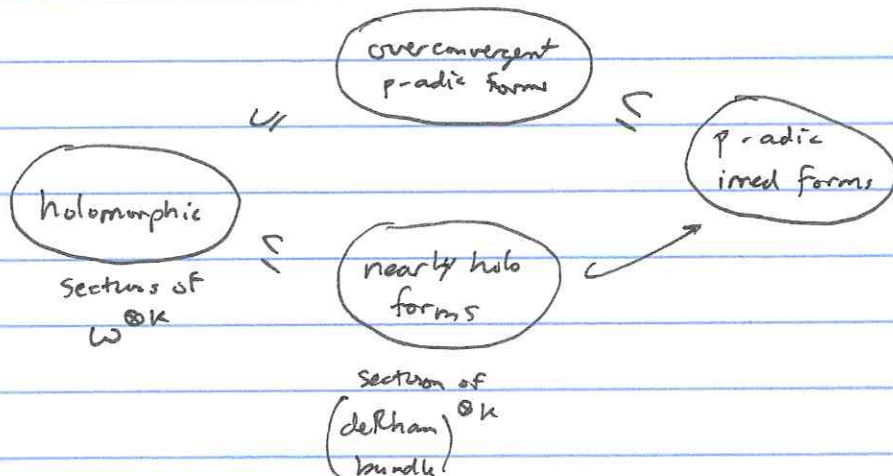 overconvergent
p-adic forms
⊆
⊆
p-adic
forms
holomorphic
⊆
nearly holo
forms
sections of
ω^⊗k
section of
(deRham bundle)^⊗k